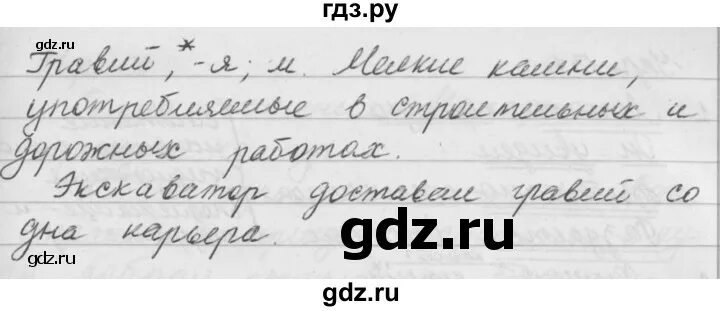 гдз.ру
gdz.ru gdz.ru
Гравий,* -я; м. Мелкие камни,
употребляемые в строительных и
дорожных работах.
Экскаватор доставал гравий со
дна карьера.
gdz.ru gdz.ru
gdz.ru